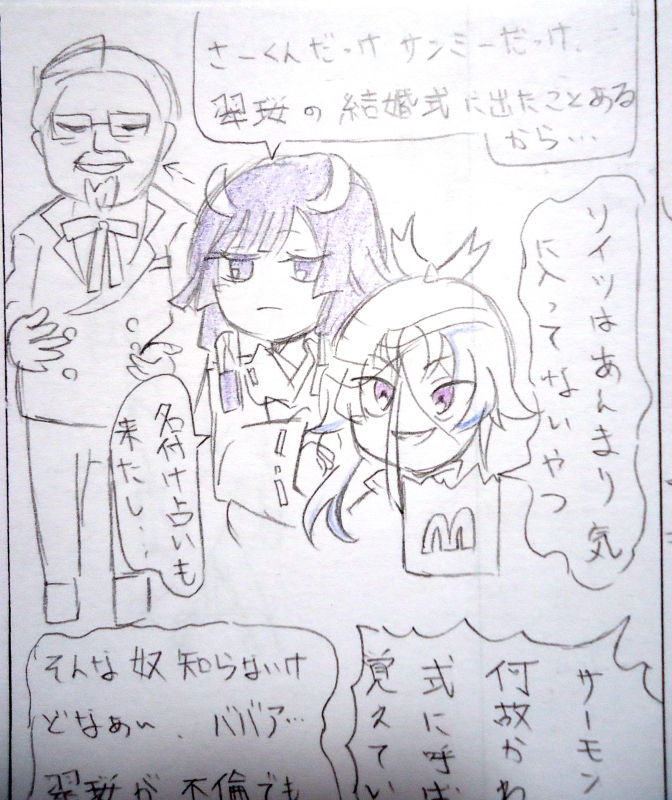 さーくんだっけ サンミーだっけ、
翠珱の結婚式に出たことある
から…
ソイツはあんまり気
に入ってないやつ
名付け占いも
来たし…
M
M
サーモン
何故かわ
式に呼ば
覚えてい
そんな奴知らないけ
どなぁ〜、ババア…
翠珱が不倫でも